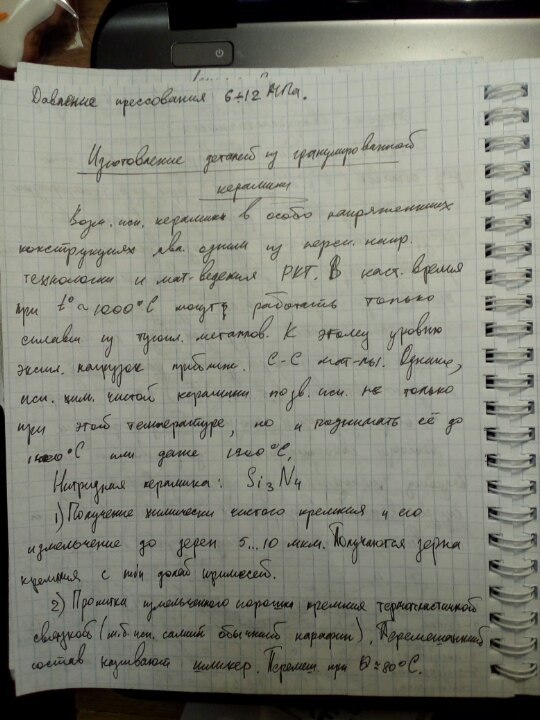 Давление прессования 6÷12 МПа.
Изготовление деталей из гранулированной
керамики
Возм. исп. керамики в особо напряженных
конструкциях явл. одним из персп. напр.
технологии и мат-ведения РКТ. В наст. время
при t°≈1000°C могут работать только
сплавы из тугопл. металлов. К этому уровню
экспл. нагрузок приближ. С-С мат-лы. Однако,
исп. хим. чистой керамики позв. исп. не только
при этой температуре, но и поднимать её до
°C или даже °C.
Нитридная керамика: Si3N4
1) Получение химически чистого кремния и его
измельчение до зерен 5...10 мкм. Получаются зерна
кремния с min долей примесей.
2) Пропитка измельченного порошка кремния термопластичной
связкой (м.б. исп. самый обычный парафин). Перемешанный
состав называют шликер. Перемеш. при ≈80°C.